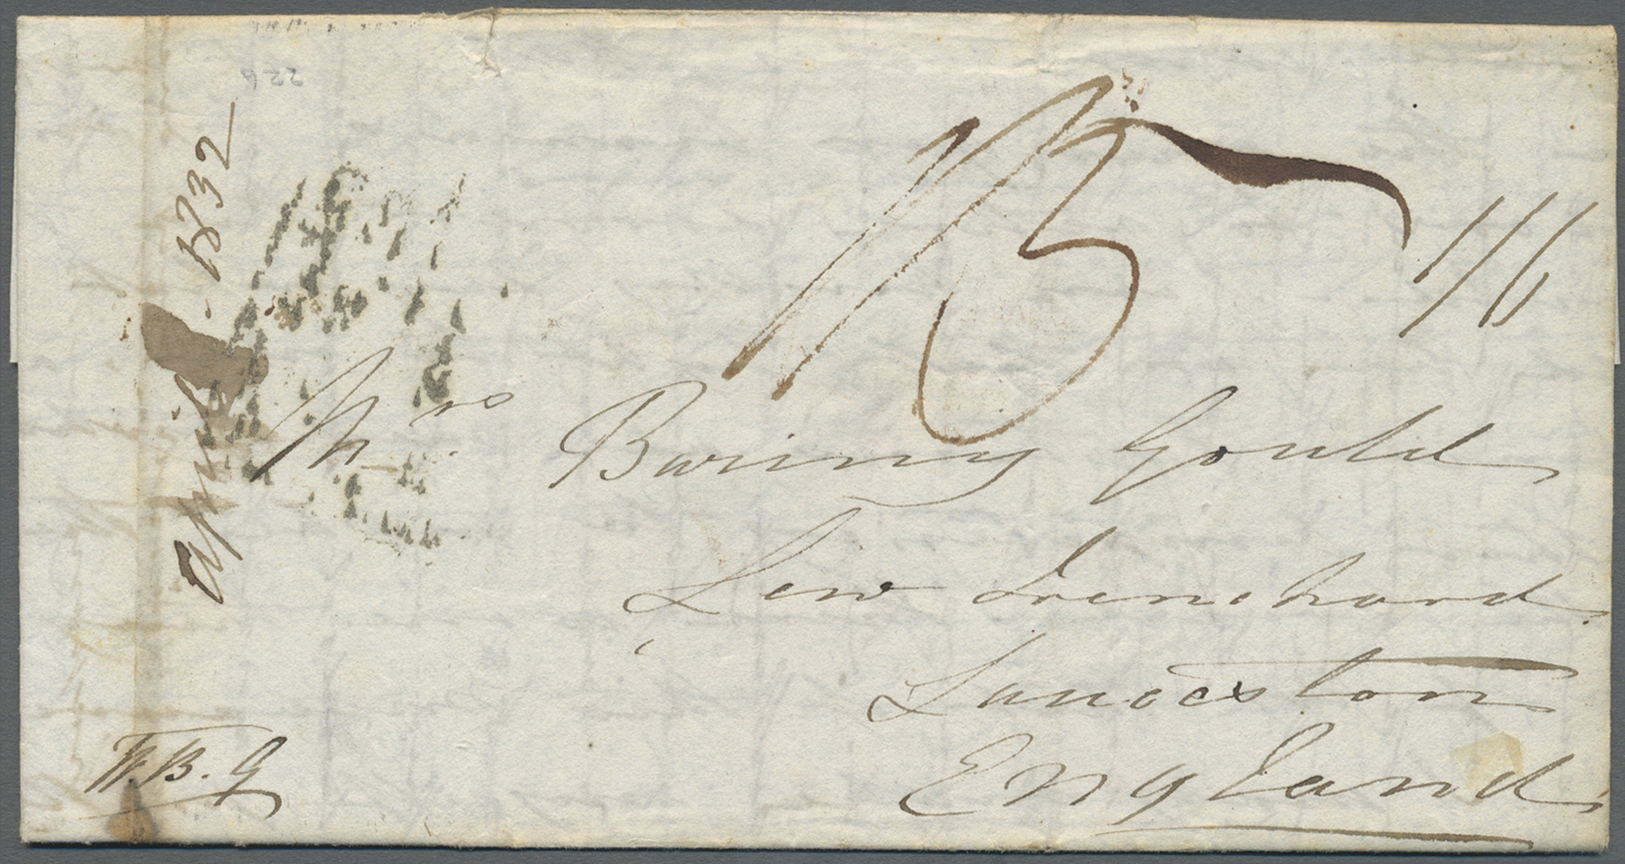 226
April 1832
1/5
1/6
Mrs Baring Gould
Lew Trenchard
Lanceston
England
W. B. G